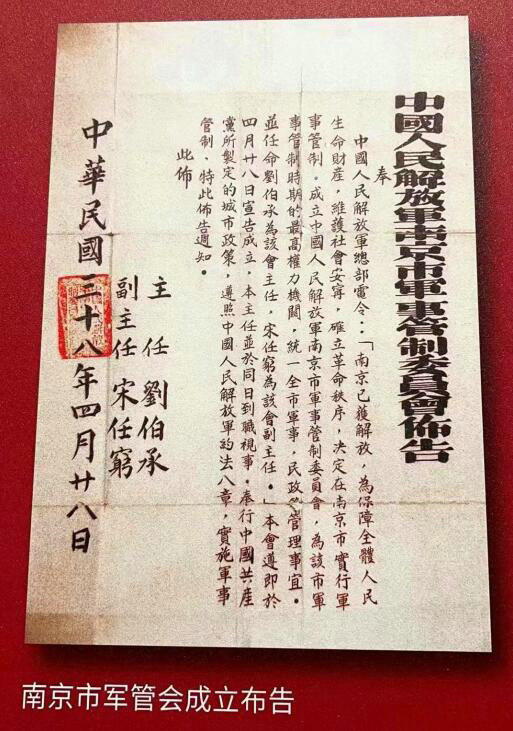 中國人民解放軍南京市軍事管制委員會佈告
奉
中國人民解放軍總部電令：「南京已獲解放，為保障全體人民
生命財產，維護社會安寧，確立革命秩序，決定在南京市實行軍
事管制。成立中國人民解放軍南京市軍事管制委員會，為該市軍
事管制時期的最高權力機關，統一全市軍事，民政等管理事宜。
並任命劉伯承為該會主任，宋任窮為該會副主任。」本會遵即於
四月廿八日宣告成立，本主任並於同日到職視事。奉行中國共產
黨所製定的城市政策，遵照中國人民解放軍約法八章，實施軍事
管制、特此佈告週知。
此佈
主任 劉伯承
副主任 宋任窮
中華民國三十八年四月廿八日
南京市军管会成立布告